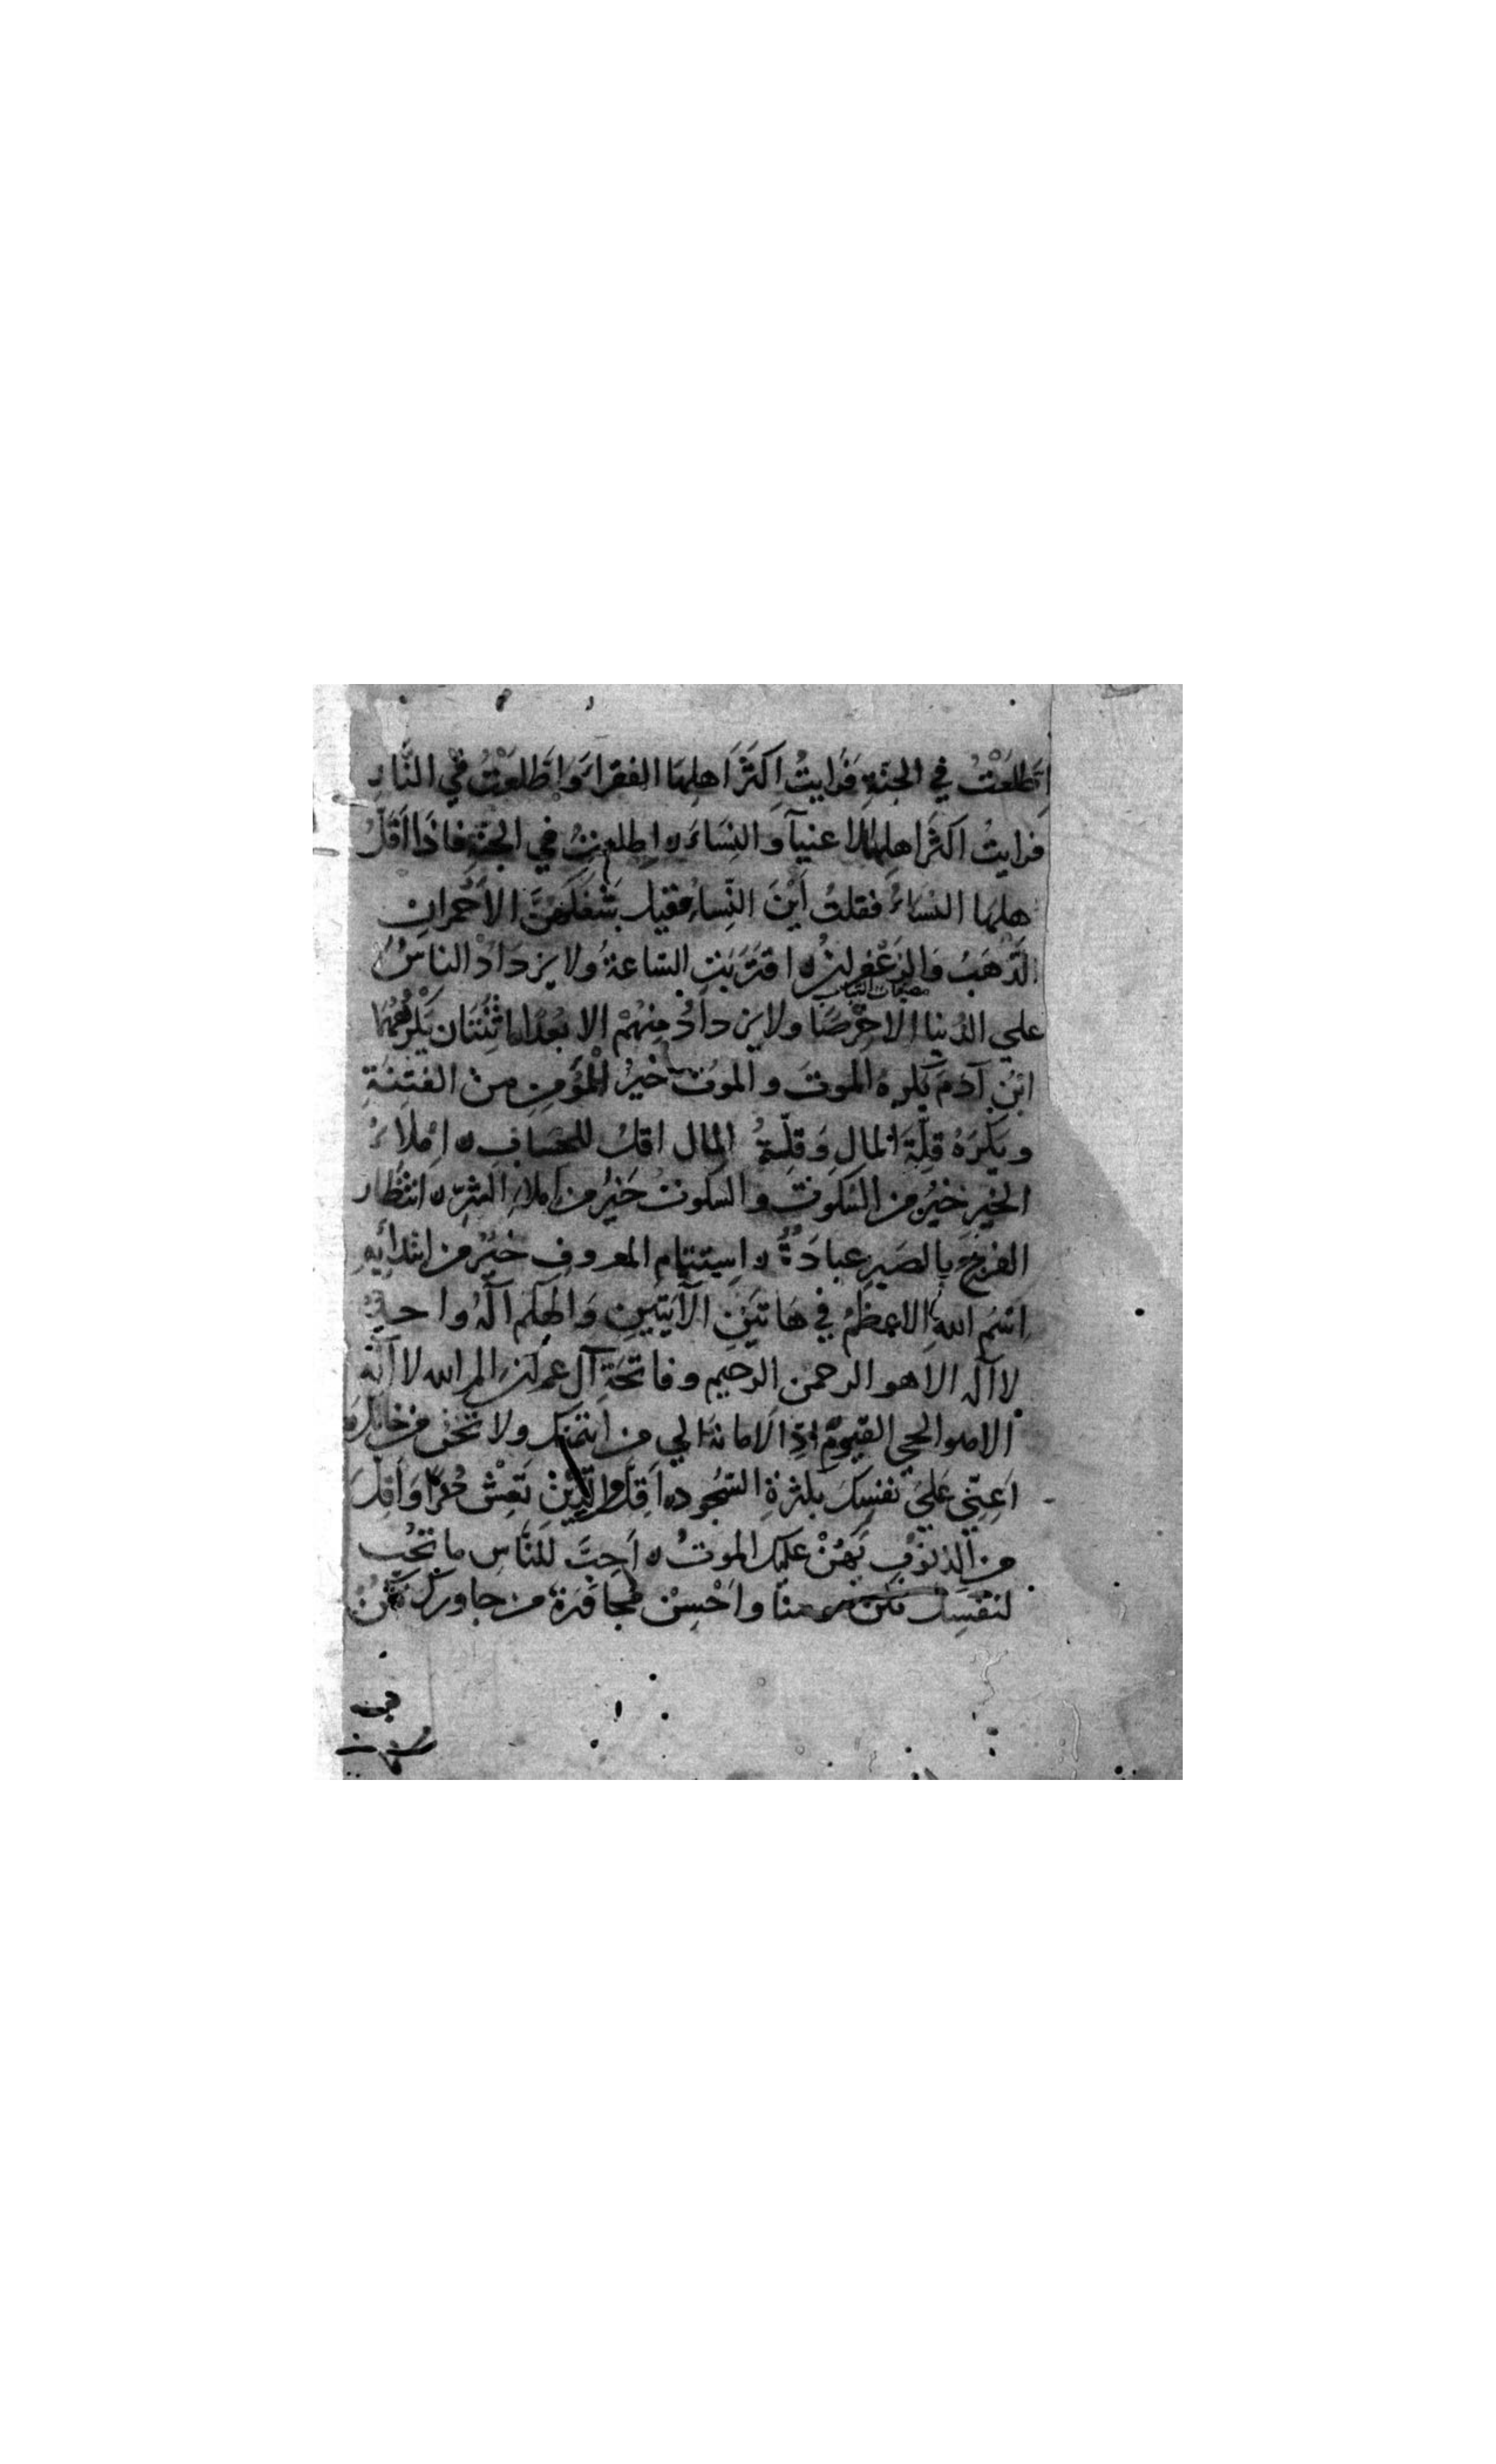 اِطَّلَعْتُ في الجنّةِ فَرَايتُ اَكثَرَ اَهلِهَا الفقراءَ وَاطَّلَعْتُ في النَّارِ
فرايتُ اكثَرَ اهلِهَا الاغنيآ والنِسَاءَ ه اطلعتُ في الجنّةِ فاذَا اَقَلُّ
اهلِهَا النسَاءُ فقلتُ اَيْنَ النِّساءُ فقيل شَغَلَهُنَّ الاَحْمَرانِ
الذَّهَبُ وَالزَعْفرانُ ه اقتَرَبَتِ السّاعةُ ولا يزدَادُ الناسُ
علي الدُنيا الا حِرْصًا ولا يزدادُ مِنهُمْ الا بُعْدًا اثنَتان يَكْرَهُهُمَا
ابنُ آدمَ يَكره الموتَ والموت خيرٌ للمؤمِنِ مِن الفتنَةِ
ويَكرَهُ قِلَّةَ المالِ وَقِلَّةُ المال اقلُّ للحسَابِ ه اِملاءُ
الخيرِ خيرٌ من السكوتِ والسكوتُ خيرٌ من املاءِ الشرّ ه انتظارُ
الفرجِ بالصبرِ عبادَةٌ ه استتمام المعروفِ خيرٌ من ابتدائِهِ
اسْمُ اللهِ الاعظمُ في هَاتَيْنِ الآيَتَيْنِ وَالهكم آلهٌ واحدٌ
لا آله الا هو الرحمن الرحيم وفاتحَةِ آل عمرن الم الله لا آله
الا هو الحي القيوم ادِّ الامانةَ الي من ائتمنك ولا تخن من خانكَ
اَعِنّي عَليَ نفسِكَ بكثرةِ السّجود ه اَقِلَّ الدَّيْنِ تَعِشْ حُرًّا وَاَقِلَّ
من الذنوبِ يَهُنْ عليك الموتُ ه اَحِبَّ لِلنَّاسِ ما تحُِبُّ
لنفسِكَ تكن مومنًا واَحْسِنْ مجاورة من جاورك تكُنْ